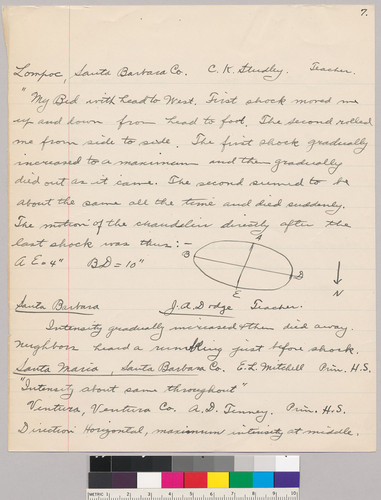 7.
Lompoc, Santa Barbara Co. C. K. Studley. Teacher.
"My Bed with head to West. First shock moved me
up and down from head to foot. The second rolled
me from side to side. The first shock gradually
increased to a maximum and then gradually
died out as it came. The second seemed to be
about the same all the time and died suddenly.
The motion of the chandelier directly after the
last shock was thus:-
A E = 4" B D = 10"
A
B
D
E
N
Santa Barbara J. A. Dodge Teacher.
Intensity gradually increased & then died away.
Neighbors heard a rumbling just before shock.
Santa Maria, Santa Barbara Co. E. L. Mitchell Prin. H.S.
"Intensity about same throughout"
Ventura, Ventura Co. A. D. Tenney. Prin. H.S.
Direction Horizontal, maximum intensity at middle.
METRIC 1 2 3 4 5 6 7 8 9 10